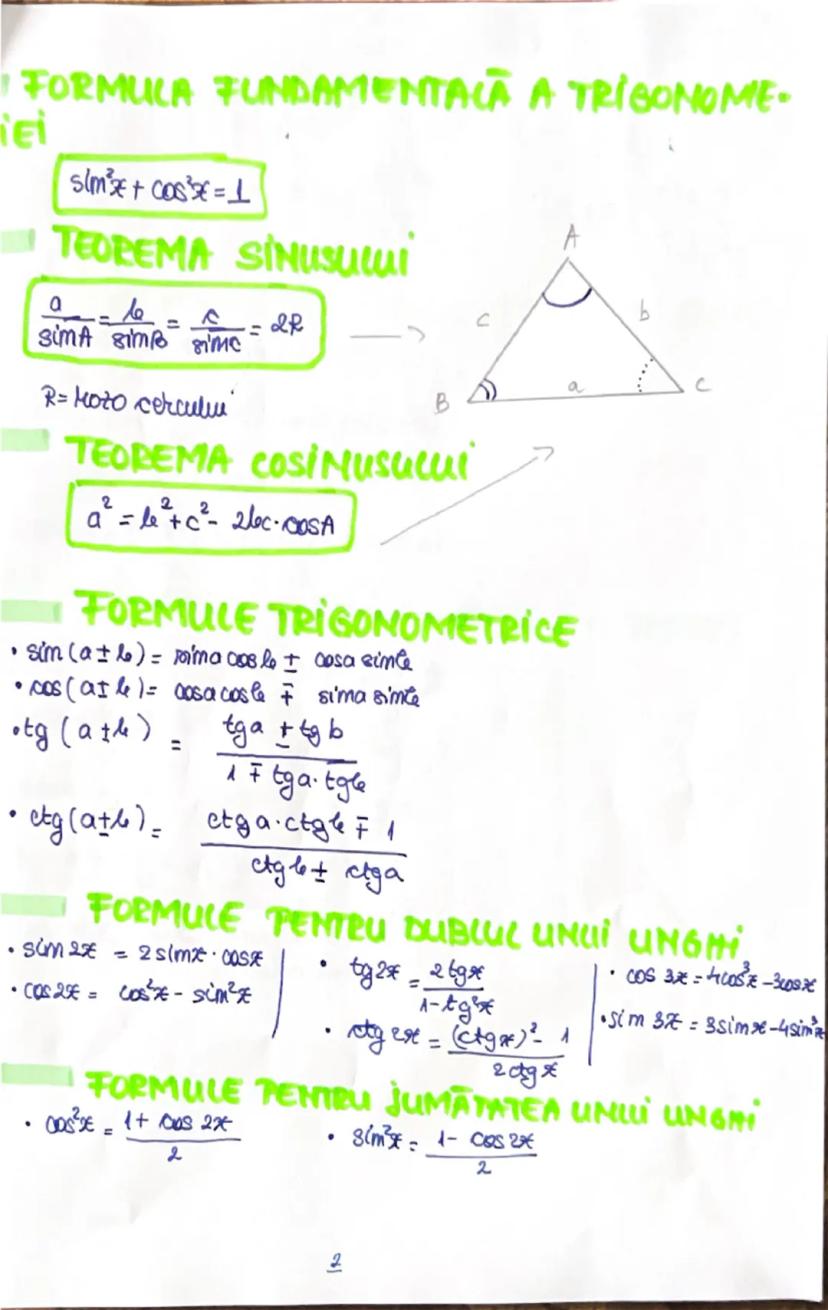 FORMULA FUNDAMENTALĂ A TRIGONOME-
IEI
sin²x + cos²x = 1
TEOREMA SINUSULUI
a/sinA = b/sinB = c/sinC = 2R
R = raza cercului
A
c
b
B
a
C
TEOREMA COSINUSULUI
a² = b² + c² - 2bc·cosA
FORMULE TRIGONOMETRICE
• sin(a±b) = sina cosb ± cosa sinb
• cos(a±b) = cosa cosb ∓ sina sinb
• tg(a±b) = (tga ± tgb)/(1 ∓ tga·tgb)
• ctg(a±b) = (ctga·ctgb ∓ 1)/(ctgb ± ctga)
FORMULE PENTRU DUBLUL UNUI UNGHI
• sin2x = 2sinx·cosx
• cos2x = cos²x - sin²x
• tg2x = 2tgx/(1-tg²x)
• ctg2x = ((ctgx)² - 1)/(2ctgx)
• cos3x = 4cos³x - 3cosx
• sin3x = 3sinx - 4sin³x
FORMULE PENTRU JUMĂTATEA UNUI UNGHI
• cos²x = (1 + cos2x)/2
• sin²x = (1 - cos2x)/2
2